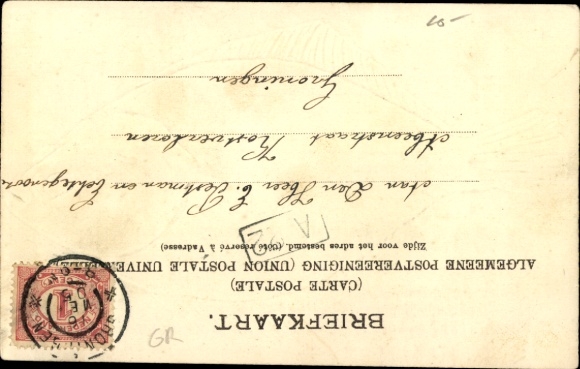 BRIEFKAART.
(CARTE POSTALE)
ALGEMEENE POSTVEREENIGING (UNION POSTALE UNIVER
Zijde voor het adres bestemd. (Côté réservé à l'adresse)
Aan Den Heer E. Pestman en Echtgenoote
Steenstraat Kostverloren
Groningen
GRONINGEN
GR